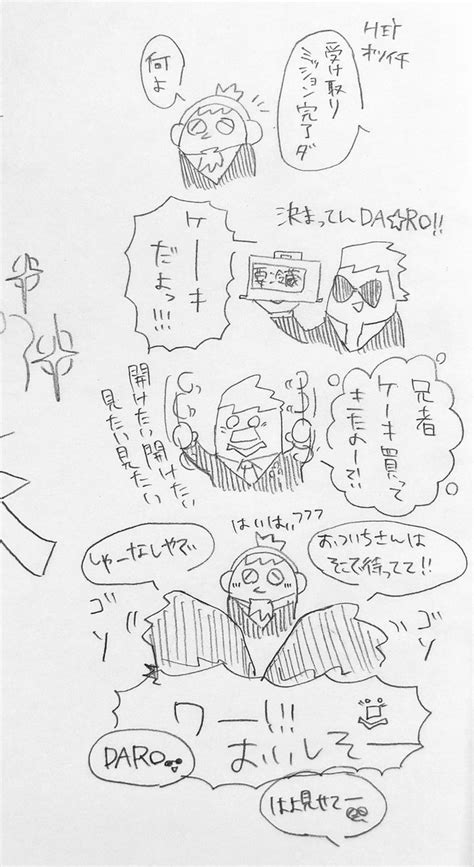 HEY
オツイチ
受け取り
ミッション完了ダ
何よ
決まってんDA☆RO!!
要冷蔵
ケーキ
だよっ!!!
兄者
ケーキ買って
きたのー?!
開けたい開けたい
見たい見たい
はいはいフフフ
おついちさんは
そこで待ってて!!
しゃーなしやでぃ
ゴソ
ゴソ
ワー!!!
おいしそー
DARO
はよ見せてー